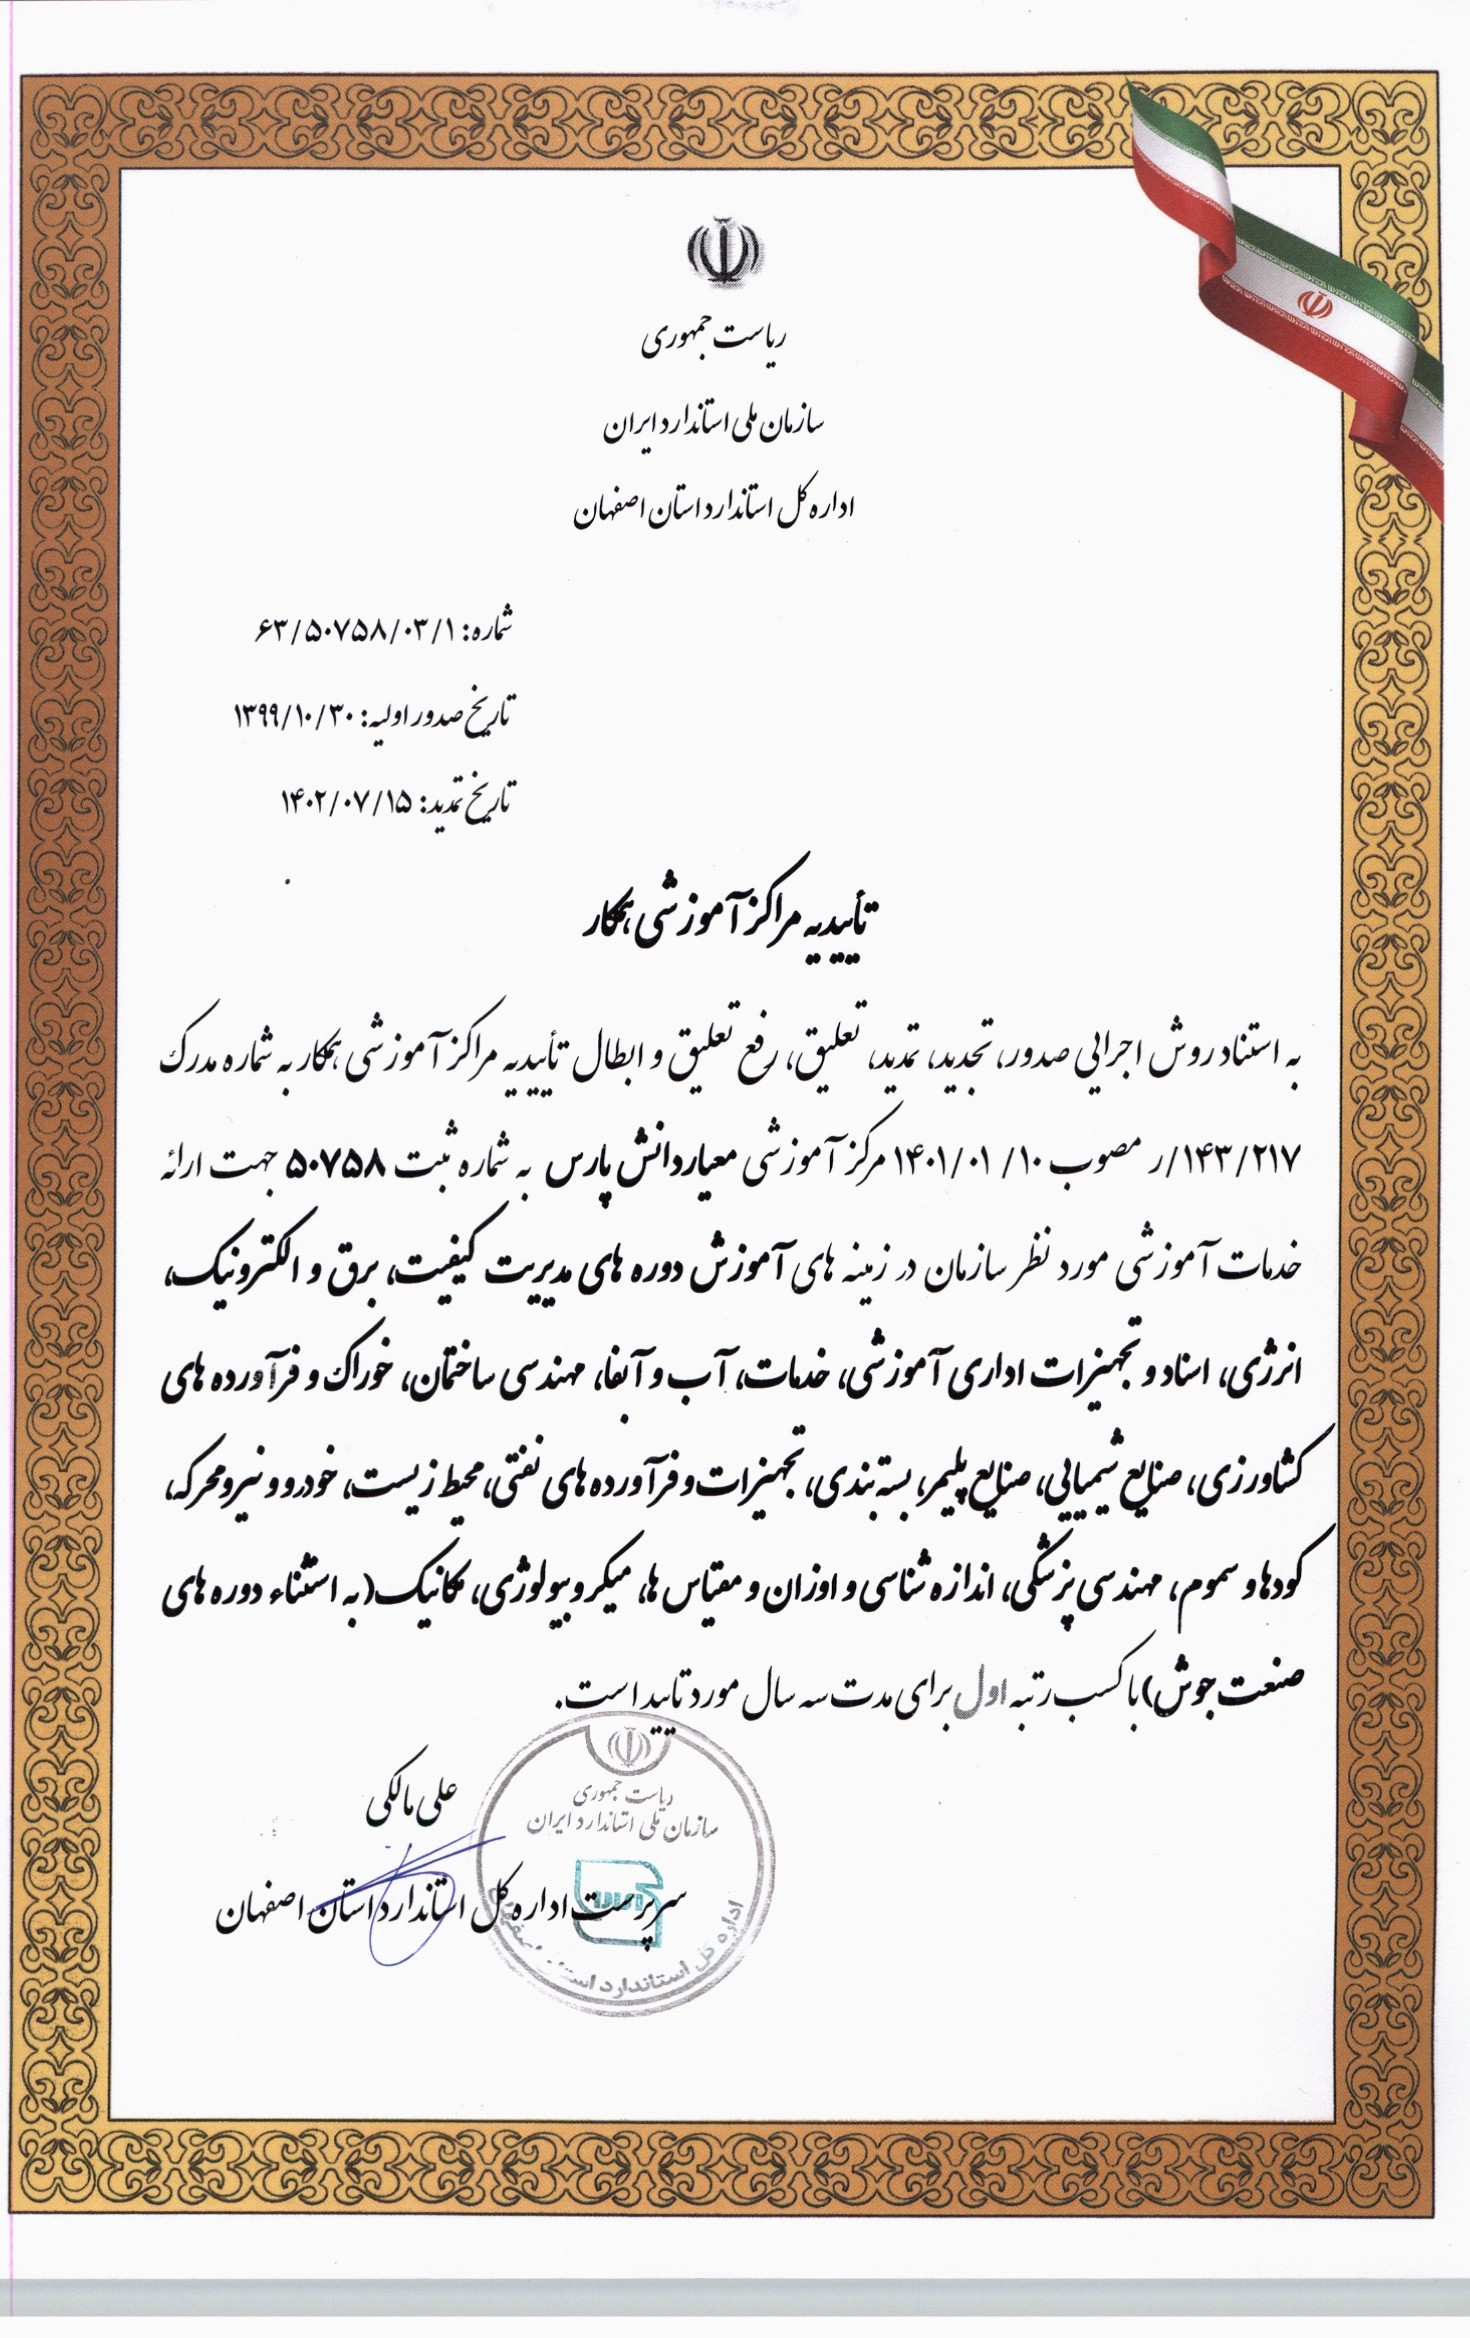 ریاست جمهوری
سازمان ملی استاندارد ایران
اداره کل استاندارد استان اصفهان
شماره: ۶۳/۵۰۷۵۸/۰۳/۱
تاریخ صدور اولیه: ۱۳۹۹/۱۰/۳۰
تاریخ تمدید: ۱۴۰۲/۰۷/۱۵
تأییدیه مراکز آموزشی همکار
به استناد روش اجرایی صدور، تجدید، تمدید، تعلیق، رفع تعلیق و ابطال تأییدیه مراکز آموزشی همکار به شماره مدرک
۱۴۳/۲۱۷/ر مصوب ۱۴۰۱/۰۱/۱۰ مرکز آموزشی معیار دانش پارس به شماره ثبت ۵۰۷۵۸ جهت ارائه
خدمات آموزشی مورد نظر سازمان در زمینه های آموزش دوره های مدیریت کیفیت، برق و الکترونیک،
انرژی، اسناد و تجهیزات اداری آموزشی، خدمات، آب و آبفا، مهندسی ساختمان، خوراک و فرآورده های
کشاورزی، صنایع شیمیایی، صنایع پلیمر، بسته بندی، تجهیزات و فرآورده های نفتی، محیط زیست، خودرو و نیرو محرکه،
کودها و سموم، مهندسی پزشکی، اندازه شناسی و اوزان و مقیاس ها، میکروبیولوژی، مکانیک(به استثناء دوره های
صنعت جوش) با کسب رتبه اول برای مدت سه سال مورد تایید است.
علی مالکی
سرپرست اداره کل استاندارد استان اصفهان
ریاست جمهوری
سازمان ملی استاندارد ایران
اداره کل استاندارد استان اصفهان